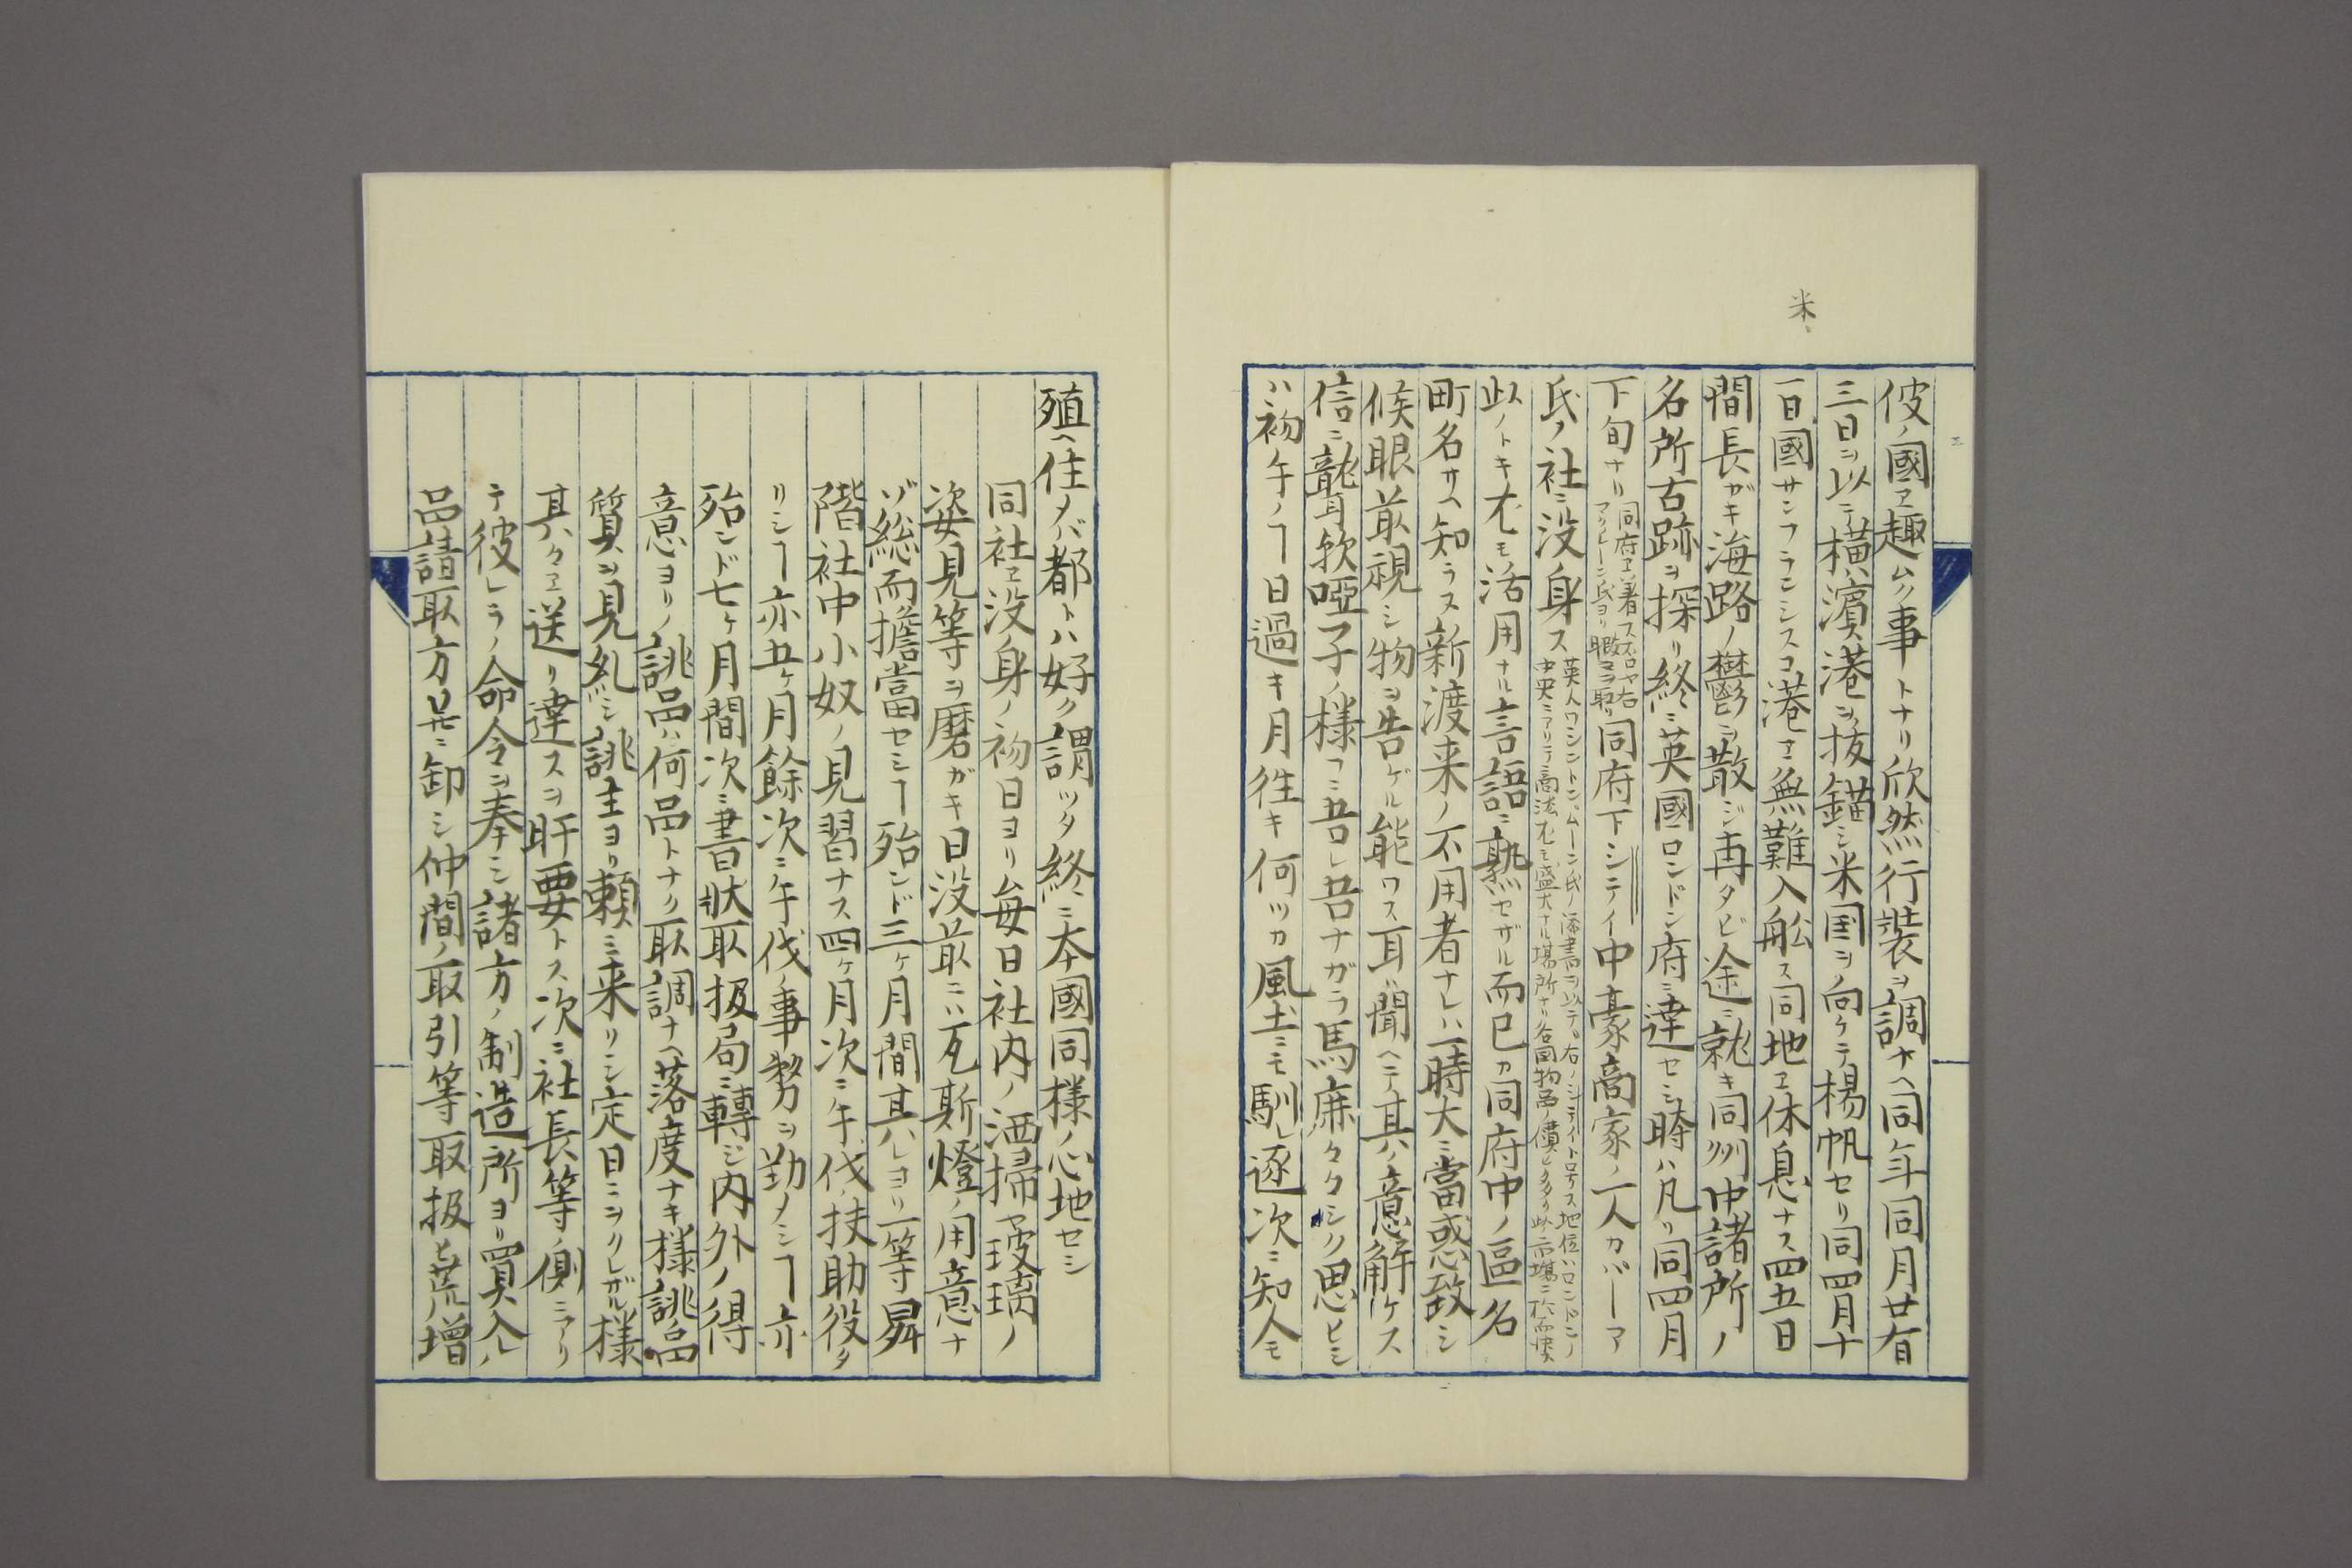 米
彼ノ國ヱ趣ムク事トナリ欣然行装ヲ調ナヘ同年同月廿有
三日ヲ以テ横濱港ヲ抜錨シ米国ヲ向ケテ楊帆セリ同四月十
一日國サンフランシスコ港ヱ無難入舩ス同地ヱ休息ナス四五日
間長ガキ海路ノ鬱ヲ散ジ再タビ途ニ就キ同州中諸所ノ
名所古跡ヲ探リ終ニ英國ロンドン府ニ達セシ時ハ凡リ同四月
下旬ナリ
同府ヱ着スルヤ右
氏ヨリ暇ヨヲ取リ
同府下シテイ中豪商家ノ一人カバーア
氏ノ社ニ没身ス
英人ワシントン、ムーン氏ノ添書ヲ以テ、右ノシテイト号ス地位ハロンドンノ
中央ニアリテ商法尤モ盛大ナル場所ナリ各国物品ノ價ヒ多クハ此市場ニ於而
此ノトキ尤モ活用ナル言語ニ熟セザル而已カ同府中ノ區名
町名サヘ知ラス新渡来ノ不用者ナレハ一時大ニ當惑致シ
候眼前視シ物ヲ告ゲル能ワス耳ハ聞ヘテ其ノ意解ケス
信ニ聾耳欤啞子ノ様フニ吾レ吾ナガラ馬鹿々々シク思ヒシ
ハ初午ノヿ日過キ月往キ何ツカ風土ニモ馴レ逐次ニ知人モ
殖ヘ住メバ都トハ好ク謂ツタ終ニ本國同様ノ心地セシ
同社ヱ没身ノ初日ヨリ毎日社内ノ洒掃ヤ玻璃ノ
姿見等ヲ磨ガキ日没前ニハ瓦斯燈ノ用意ナ
ゾ総而擔當セシヿ殆ンド三ヶ月間其レヨリ一等昇
階社中小奴ノ見習ナス四ヶ月次ニ午伐ノ扶助役タ
リシヿ亦五ヶ月餘次ニ午伐ノ事務ヲ勤メシヿ亦
殆ンド七ヶ月間次ニ書状取扱局ニ轉ジ内外ノ得
意ヨリノ誂品ハ何品トナク取調ナヘ落度ナキ様誂品
質ヲ見糺シ誂主ヨリ頼ミ来リシ定日ニヲクレザル様
其ハクヱ送リ達スヲ肝要トス次ニ社長等ノ側ニアリ
テ彼レラノ命令ヲ奉シ諸方ノ制造所ヨリ買入レノ
品請取方并ニ卸シ仲間ノ取引等取扱ヒ荒増